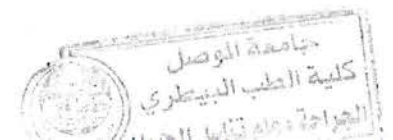 جامعة الموصل
كلية الطب البيطري
الجراحة وعلم تناسل الحيوان